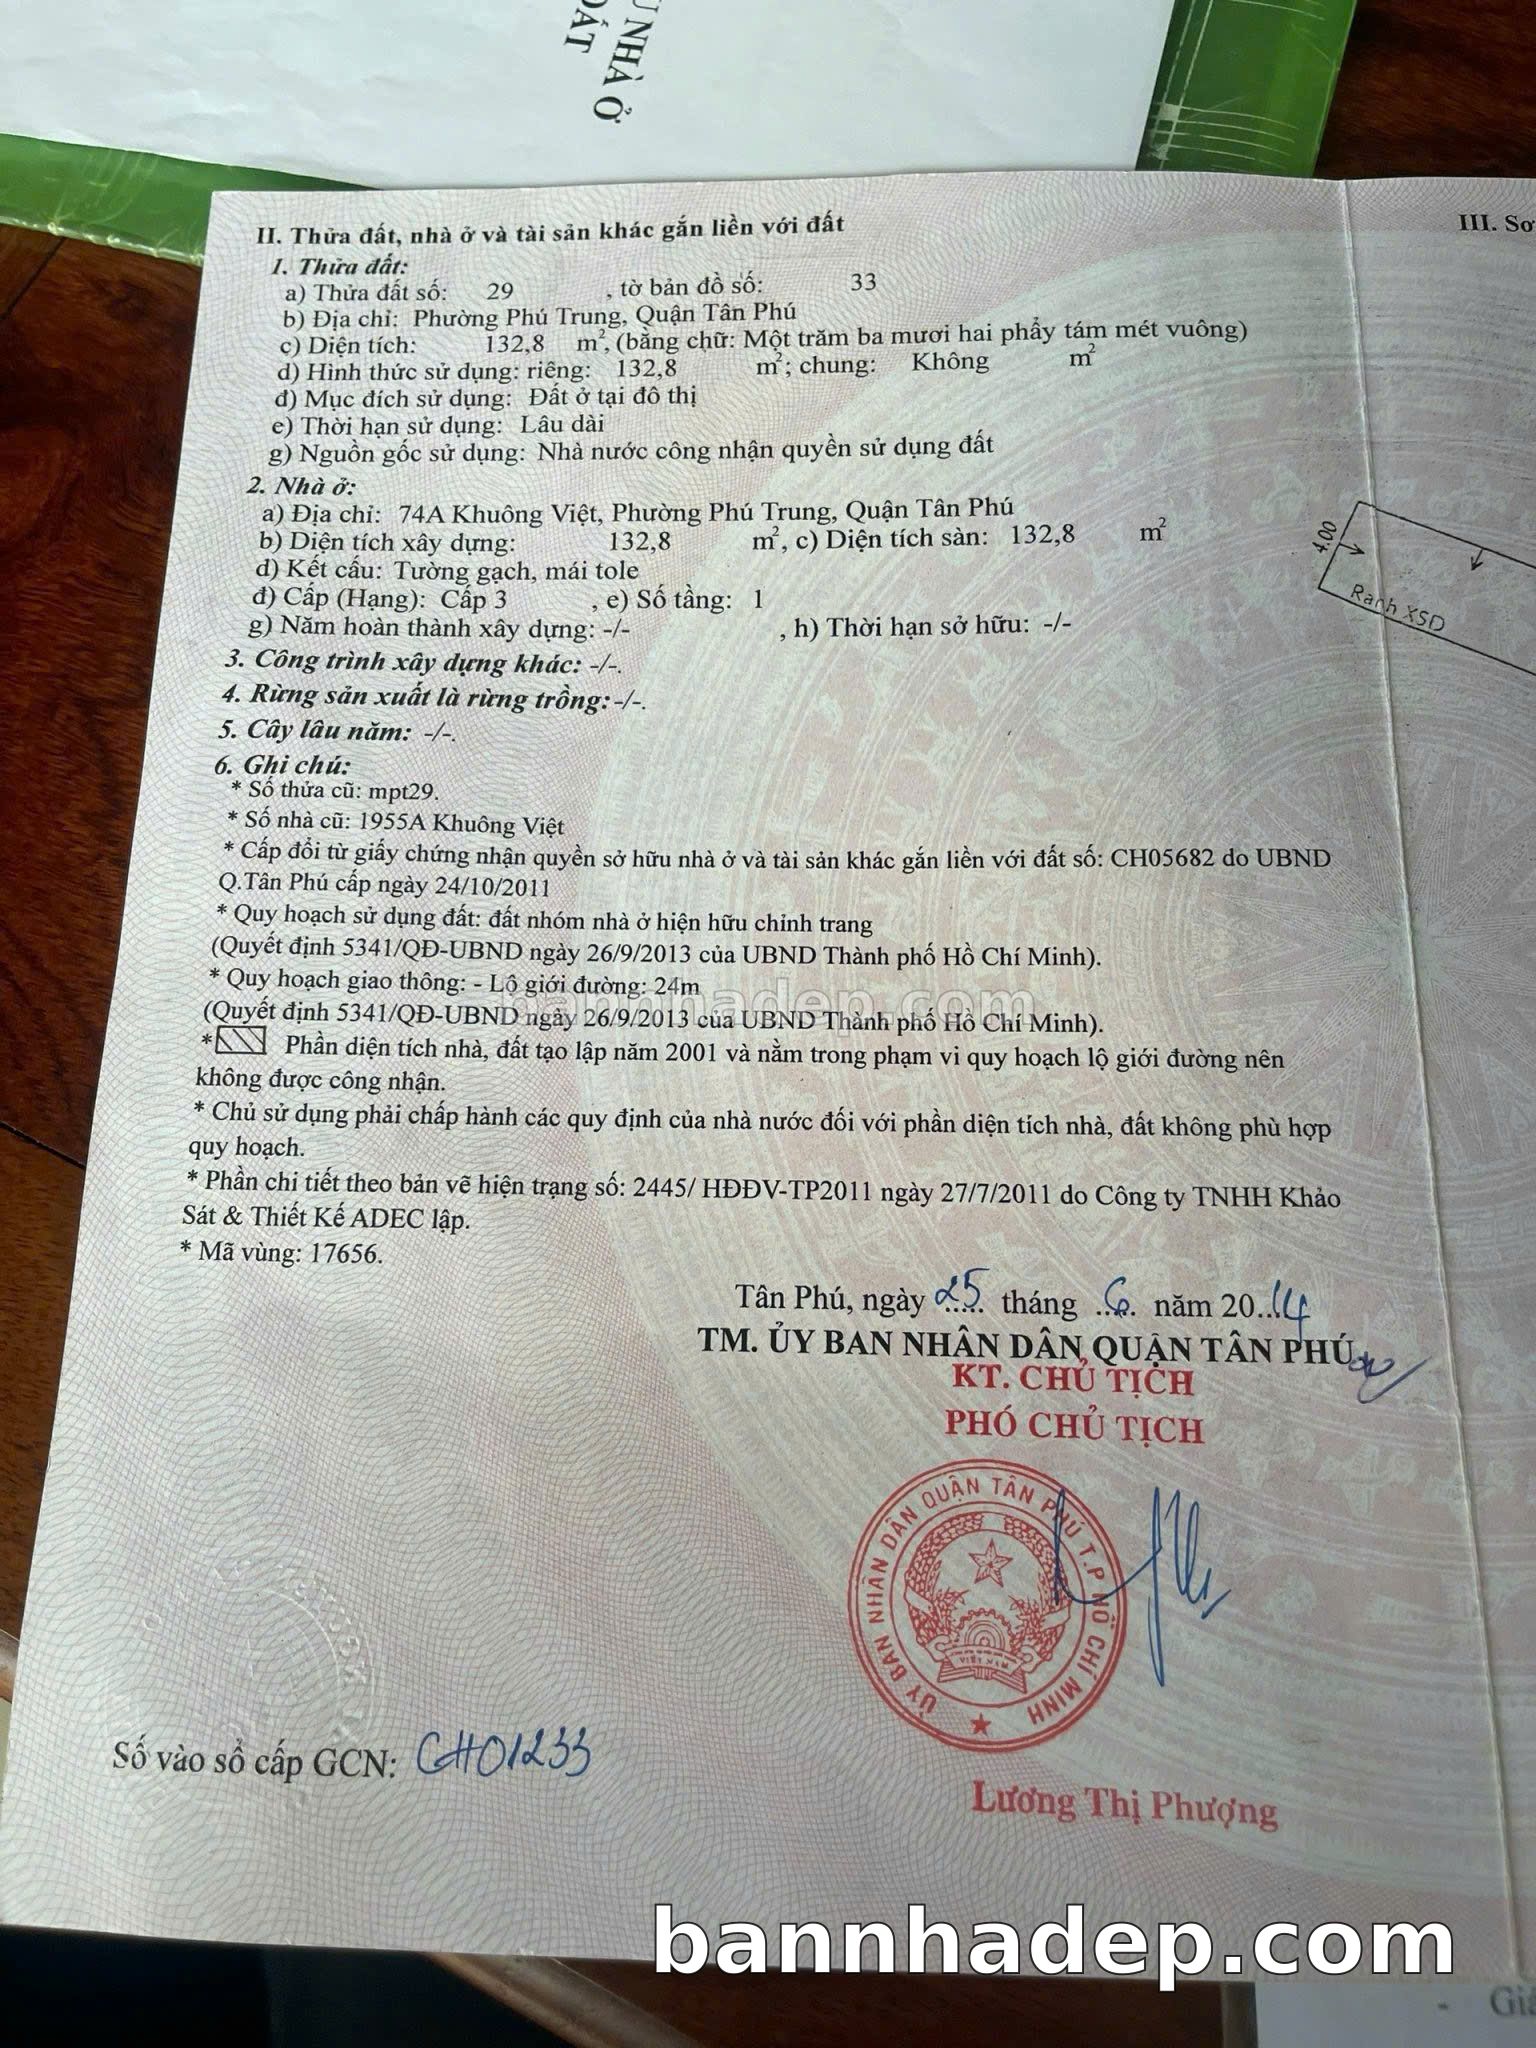 Ư NHÀ Ở
ĐẤT
II. Thửa đất, nhà ở và tài sản khác gắn liền với đất
1. Thửa đất:
a) Thửa đất số: 29 , tờ bản đồ số: 33
b) Địa chỉ: Phường Phú Trung, Quận Tân Phú
c) Diện tích: 132,8 m², (bằng chữ: Một trăm ba mươi hai phẩy tám mét vuông)
d) Hình thức sử dụng: riêng: 132,8 m²; chung: Không m²
đ) Mục đích sử dụng: Đất ở tại đô thị
e) Thời hạn sử dụng: Lâu dài
g) Nguồn gốc sử dụng: Nhà nước công nhận quyền sử dụng đất
2. Nhà ở:
a) Địa chỉ: 74A Khuông Việt, Phường Phú Trung, Quận Tân Phú
b) Diện tích xây dựng: 132,8 m², c) Diện tích sàn: 132,8 m²
d) Kết cấu: Tường gạch, mái tole
đ) Cấp (Hạng): Cấp 3 , e) Số tầng: 1
g) Năm hoàn thành xây dựng: -/- , h) Thời hạn sở hữu: -/-
3. Công trình xây dựng khác: -/-.
4. Rừng sản xuất là rừng trồng: -/-.
5. Cây lâu năm: -/-.
6. Ghi chú:
* Số thửa cũ: mpt29.
* Số nhà cũ: 1955A Khuông Việt
* Cấp đổi từ giấy chứng nhận quyền sở hữu nhà ở và tài sản khác gắn liền với đất số: CH05682 do UBND
Q.Tân Phú cấp ngày 24/10/2011
* Quy hoạch sử dụng đất: đất nhóm nhà ở hiện hữu chỉnh trang
(Quyết định 5341/QĐ-UBND ngày 26/9/2013 của UBND Thành phố Hồ Chí Minh).
* Quy hoạch giao thông: - Lộ giới đường: 24m
bannhadep.com
(Quyết định 5341/QĐ-UBND ngày 26/9/2013 của UBND Thành phố Hồ Chí Minh).
* Phần diện tích nhà, đất tạo lập năm 2001 và nằm trong phạm vi quy hoạch lộ giới đường nên
không được công nhận.
* Chủ sử dụng phải chấp hành các quy định của nhà nước đối với phần diện tích nhà, đất không phù hợp
quy hoạch.
* Phần chi tiết theo bản vẽ hiện trạng số: 2445/ HĐĐV-TP2011 ngày 27/7/2011 do Công ty TNHH Khảo
Sát & Thiết Kế ADEC lập.
* Mã vùng: 17656.
Tân Phú, ngày 25 tháng 6 năm 2014
TM. ỦY BAN NHÂN DÂN QUẬN TÂN PHÚ
KT. CHỦ TỊCH
PHÓ CHỦ TỊCH
ỦY BAN NHÂN DÂN QUẬN TÂN PHÚ T.P HỒ CHÍ MINH
VIỆT NAM
Lương Thị Phượng
Số vào sổ cấp GCN: CH01233
III. Sơ
4.00
Ranh XSD
bannhadep.com
- Giá